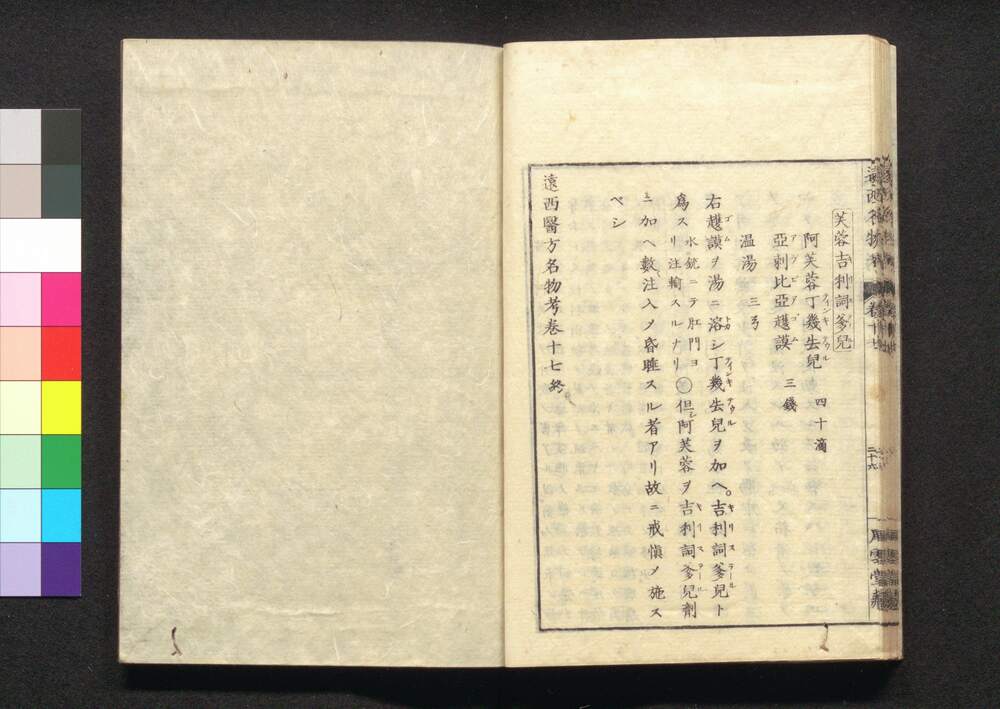 芙蓉吉利詞爹兒
阿芙蓉丁幾丢兒 四十滴
亞剌比亞護謨 三錢
温湯 三弓
右護謨ヲ湯ニ溶シ丁幾丢兒ヲ加ヘ。吉利詞爹兒ト
爲ス 水銃ニテ肛門ヨリ注輸スルナリ ○但シ阿芙蓉ヲ吉利詞爹兒劑
ニ加ヘ數注入メ昏睡スル者アリ故ニ戒愼メ施ス
ベシ
遠西醫方名物考卷十七終
卷十七
二十六